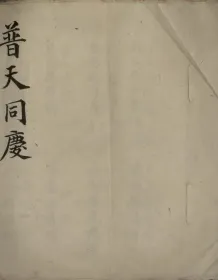 普天同慶